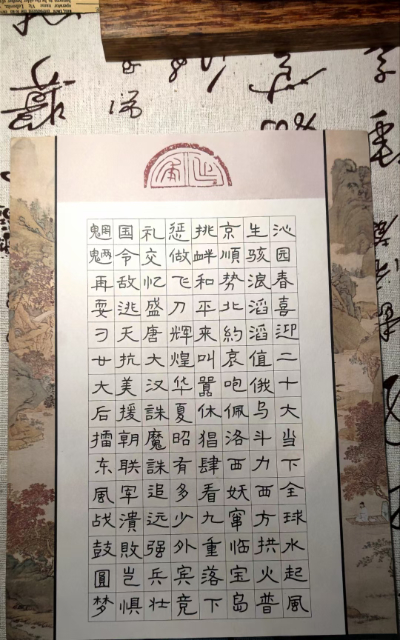 沁园春喜迎二十大当下全球水起風
生骇浪滔滔值俄乌斗力西方拱火普
京順势北約哀咆佩洛西妖窜临宝岛
挑衅和平来叫嚣休猖肆看九重落下
惩做飞刀辉煌华夏昭有多少外宾竞
礼交忆盛唐大汉誅魔誅追远强兵壮
国令故逃天抗美援朝联军潰敗岂惧
魍魎再耍刁廿大后擂东風战鼓圓梦